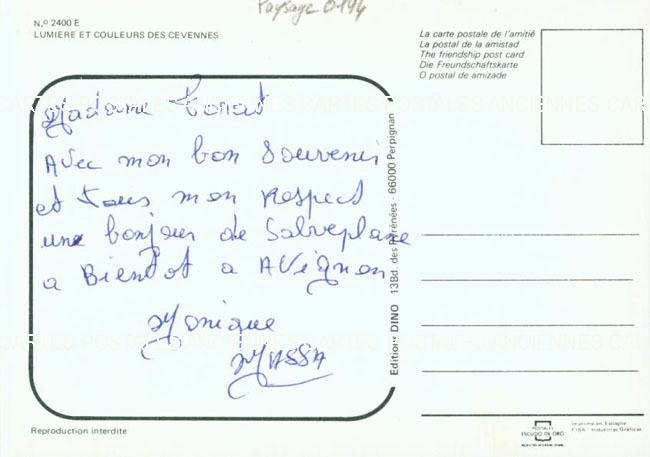 Paysage 0-194
N.º 2400 E
LUMIERE ET COULEURS DES CEVENNES
La carte postale de l'amitié
La postal de la amistad
The friendship post card
Die Freundschaftskarte
O postal de amizade
Madame
Avec mon bon Souvenir
et tous mon respect
une bonjour de Salveplane
a Bientot a Avignon
Monique
MASSA
Edition DINO 13Bd. des Pyrénées - 66000 Perpignan
CARTES POSTALES ANCIENNES
CARTES POSTALES ANCIENNES
Reproduction interdite
POSTALES
ESCUDO DE ORO
Imprimé en Espagne
FISA - Industrias Gráficas